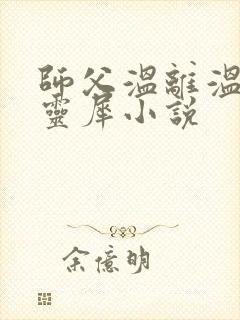 師父溫離溫
靈犀小說
余億明